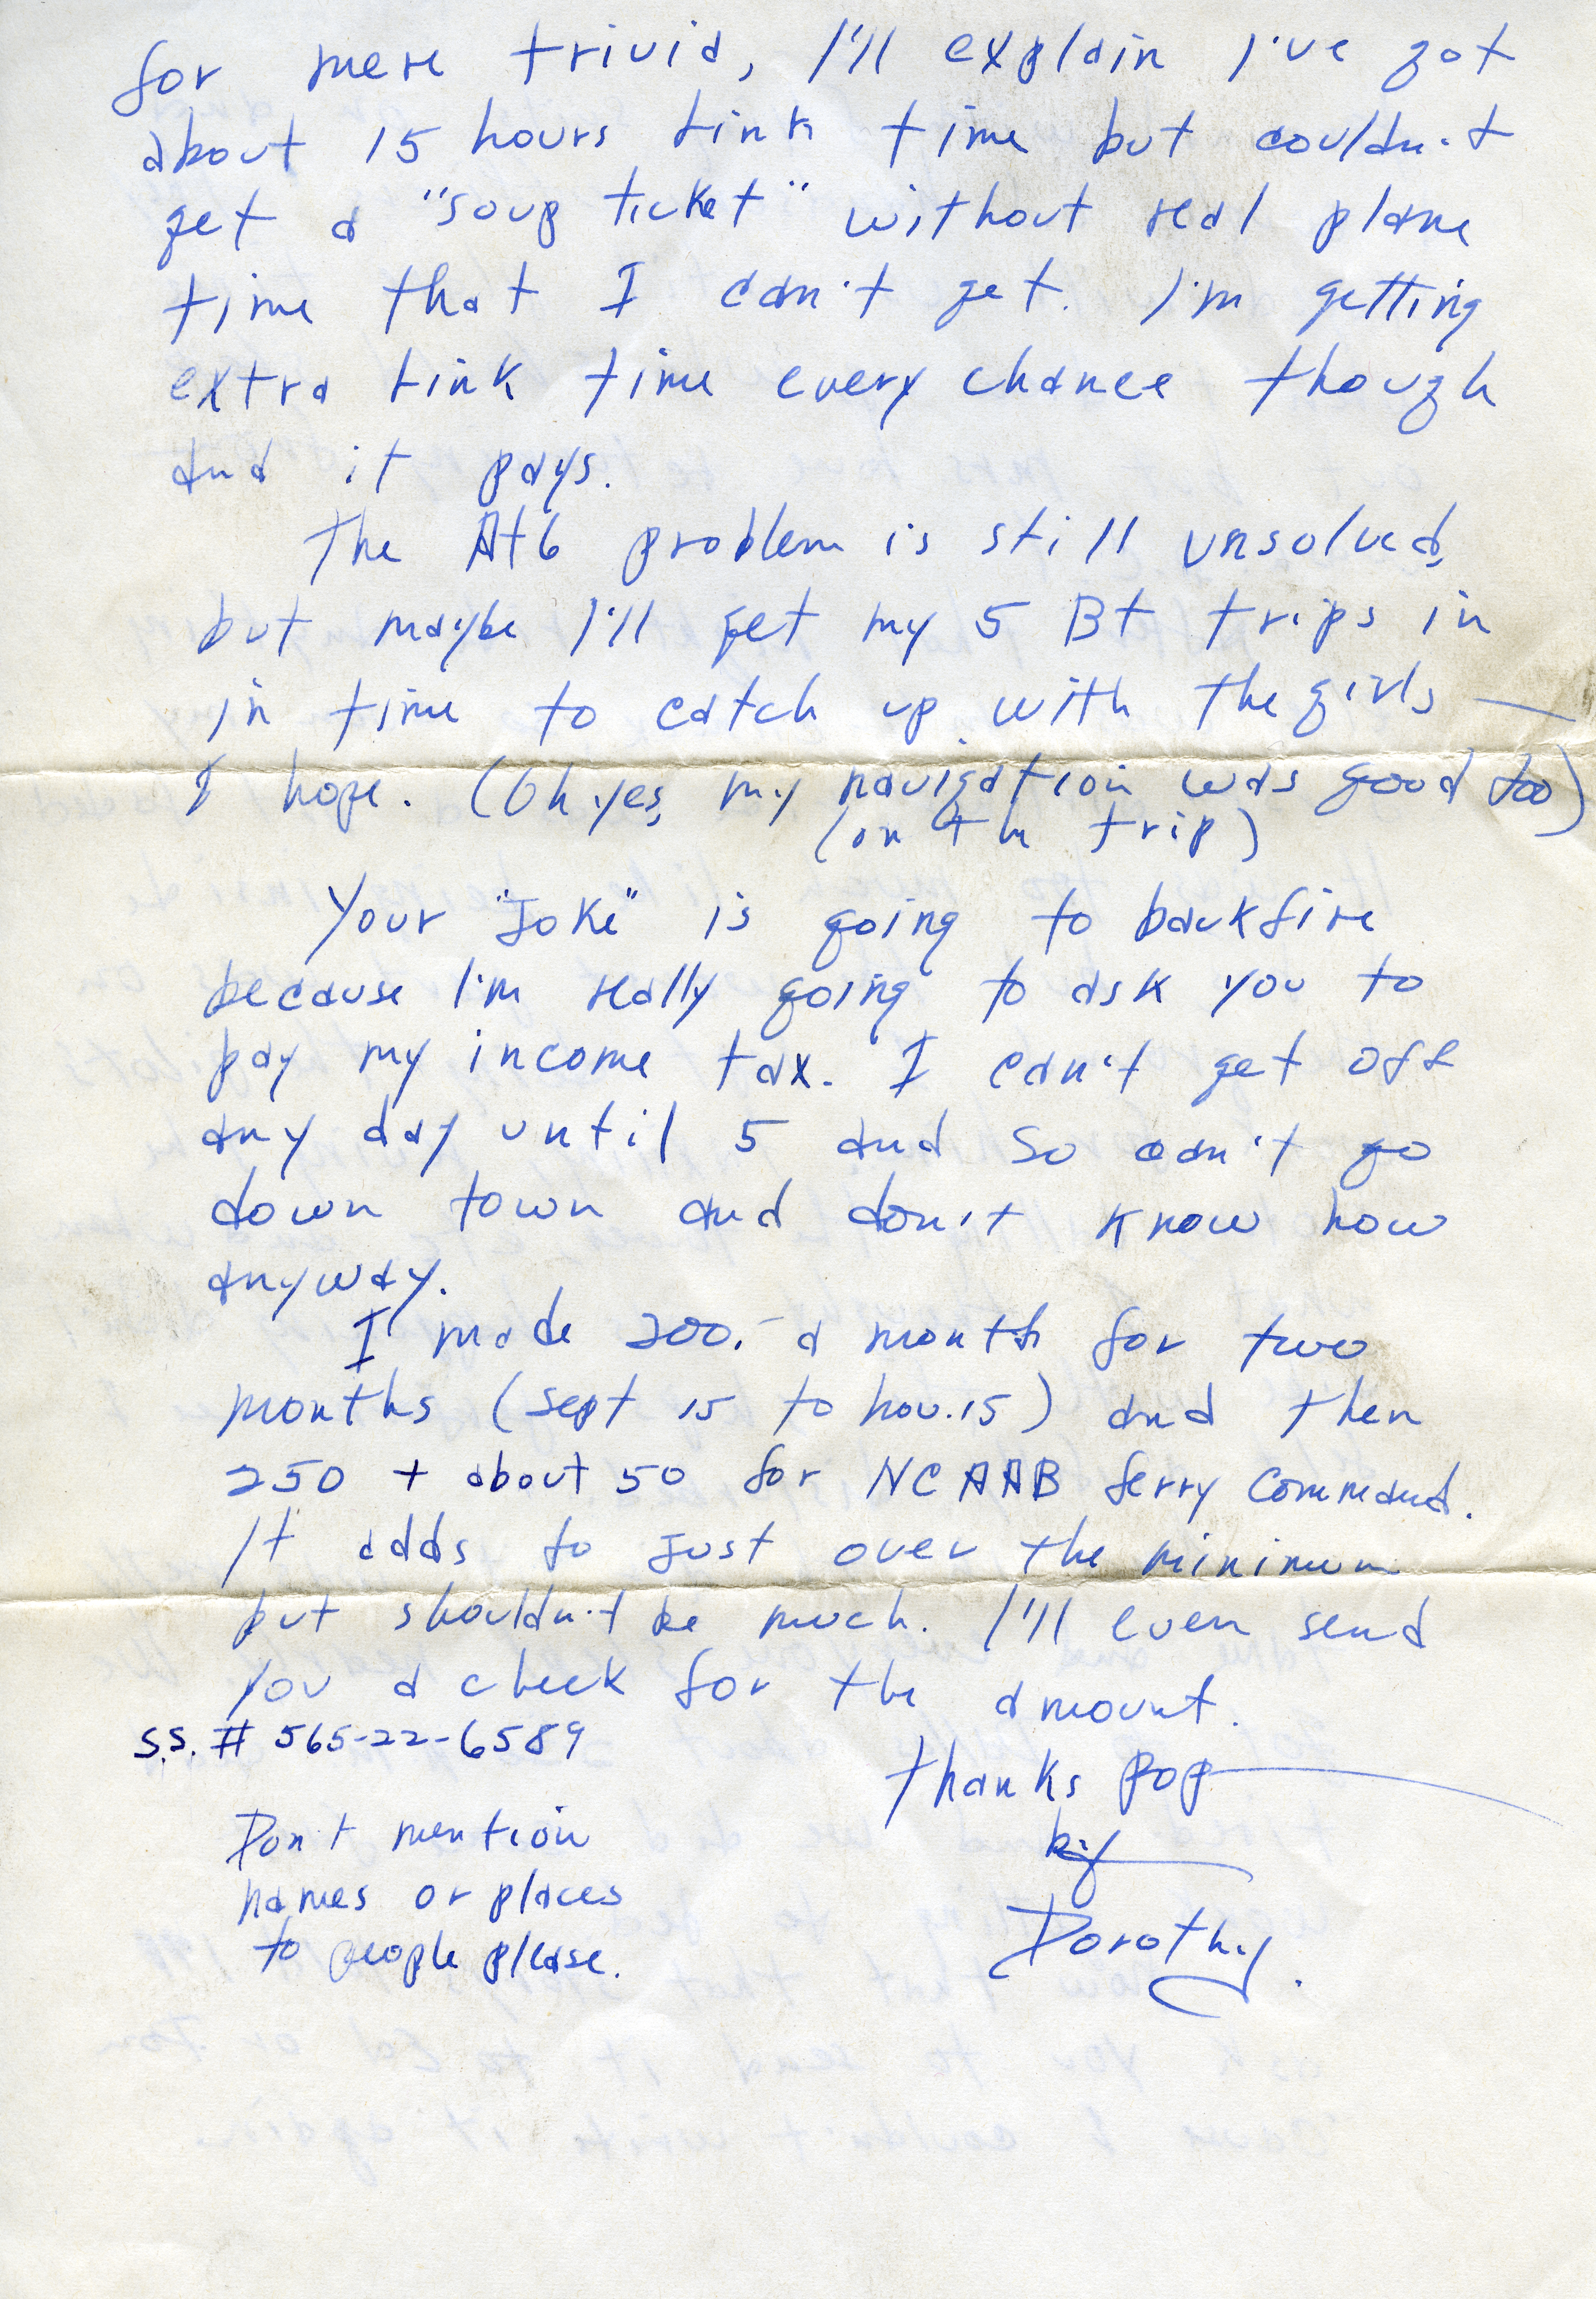 for mere trivia, I'll explain I've got
about 15 hours link time but couldn't
get a "soup ticket" without real plane
time that I can't get. I'm getting
extra link time every chance though
and it pays.
The At6 problem is still unsolved,
but maybe I'll get my 5 Bt trips in
in time to catch up with the girls —
I hope. (Oh yes, my navigation was good too)
(on the trip)
Your "Joke" is going to backfire
because I'm really going to ask you to
pay my income tax. I can't get off
any day until 5 and so can't go
down town and don't know how
anyway.
I made 200.- a month for two
months (Sept 15 to nov. 15) and then
250 + about 50 for NCAAB ferry Command.
It adds to just over the minimum
but shouldn't be much. I'll even send
you a check for the amount.
S.S. # 565-22-6589
Thanks pop
by
Dorothy.
Don't mention
names or places
to people please.